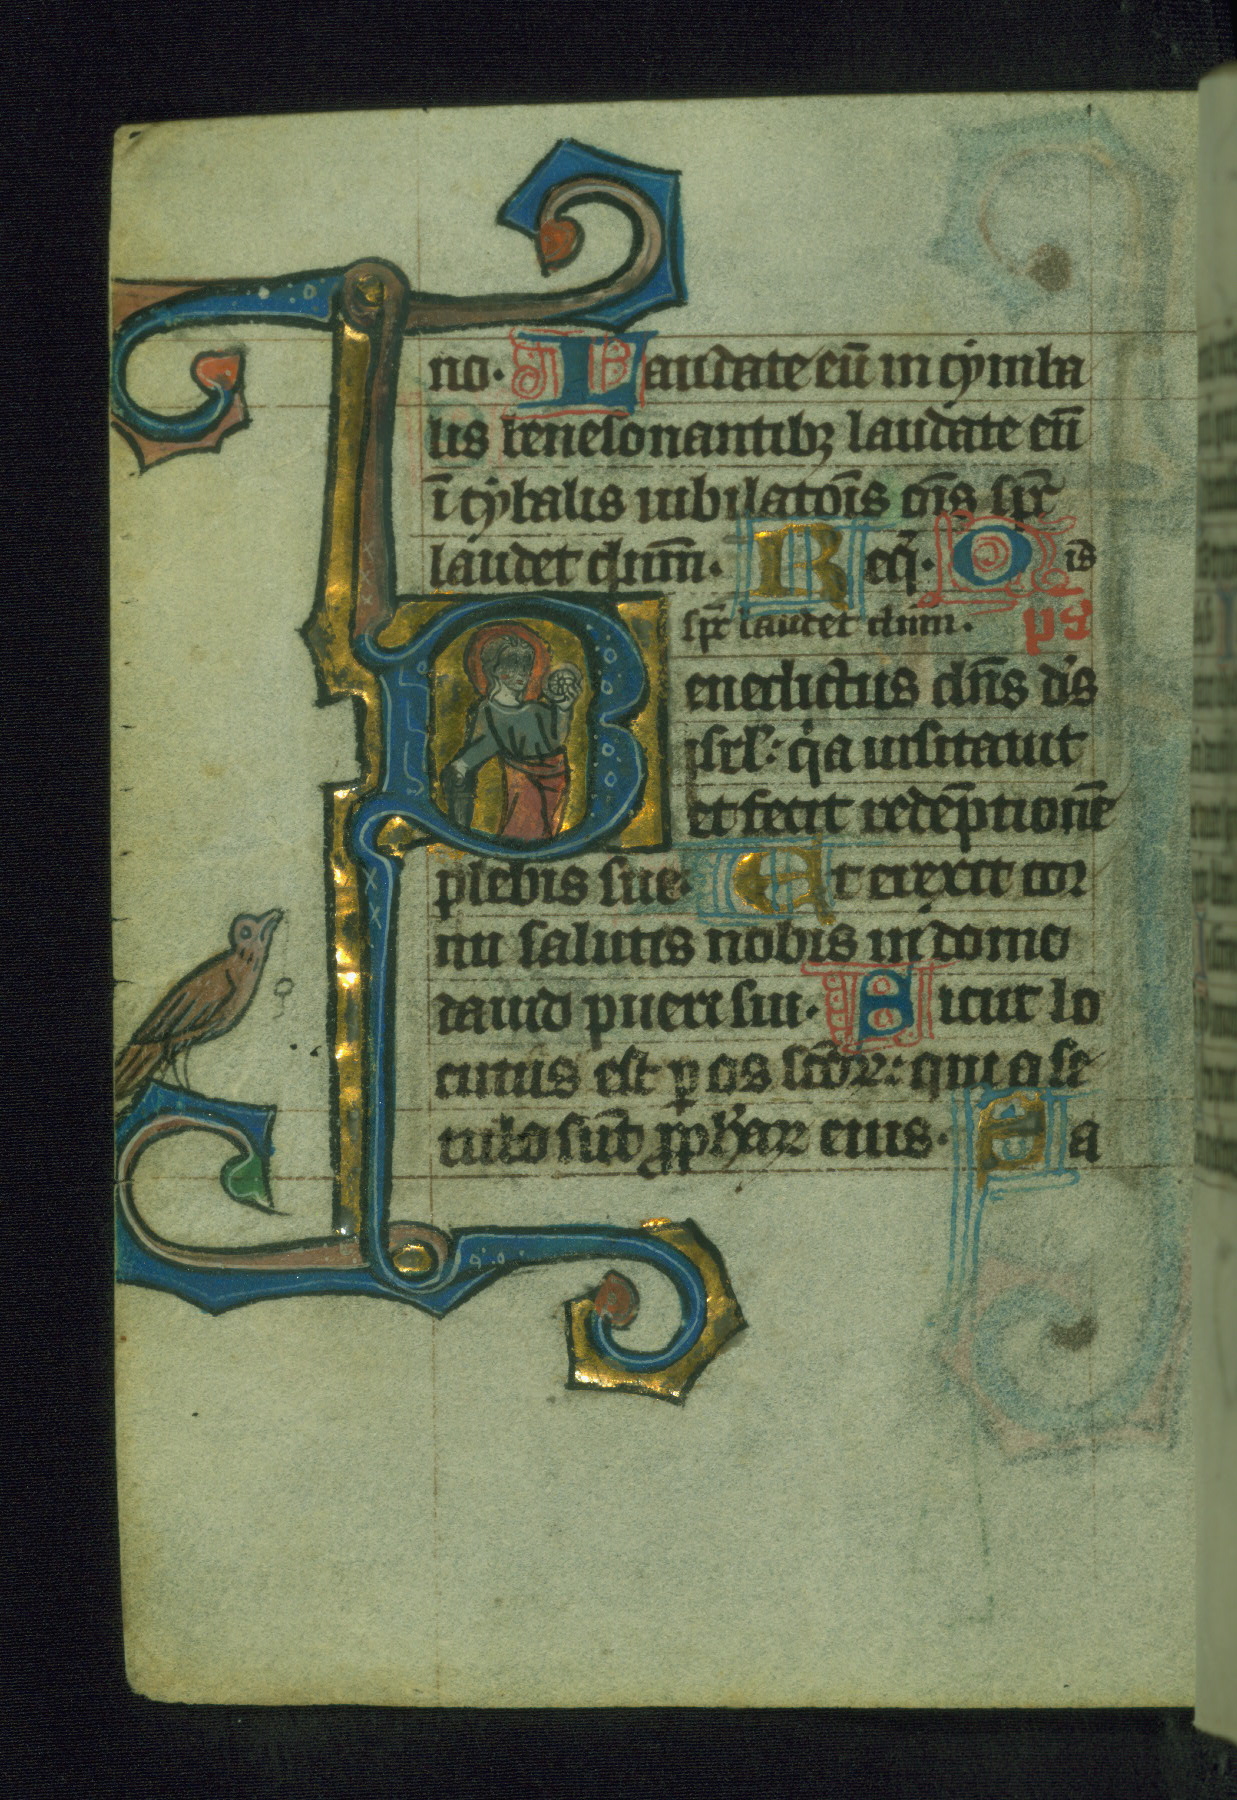 no. Laudate eū in cȳmba
lis benesonantibꝫ laudate eū
ī cȳbalis iubilatōis oīs spr̄
laudet dnm̄. Req̄. Ois
spr̄ laudet dnm̄. ps
Benedictus dn̄s ds̄
isrl̄: qͥa uisitauit
et fecit redēptionē
plebis sue. Et erexit cor
nu salutis nobis in domo
dauid pueri sui. Sicut lo
cutus est ꝑ os scōꝝ: qui a se
culo sūt ꝓphꝫaꝝ eius. Sa